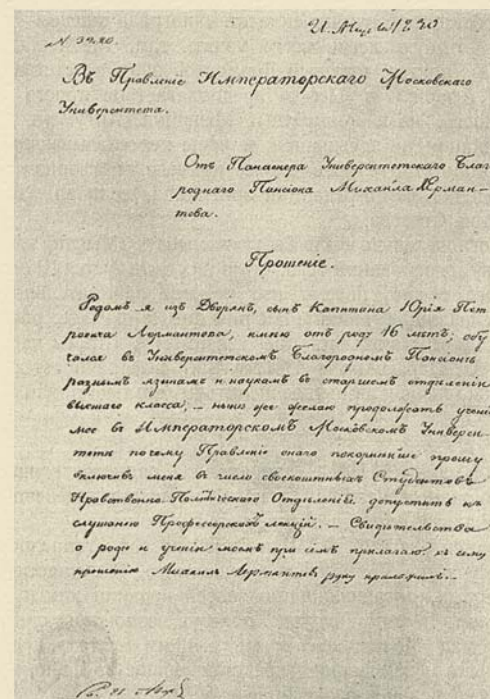 N 3920.
Въ Правленіе Императорскаго Московскаго
Университета.
Отъ Пансіонера Университетскаго Благо
роднаго Пансіона Михайла Лерман-
това.
Прошеніе.
Родомъ я изъ Дворянъ, сынъ Капитана Юрія Пет
ровича Лермантова; имею отъ роду 16 летъ; обу
чался въ Университетскомъ Благородномъ Пансіонѣ
разнымъ языкамъ и наукамъ въ старшемъ отделеніи
высшаго класса; — ныне же желаю продолжать ученіе
мое въ Императорскомъ Московскомъ Универси-
тетѣ почему Правленіе онаго покорнейше прошу
включивъ меня въ число своекоштныхъ Студентовъ
Нравственно-Политическаго Отделенія, допустить къ
слушанію Профессорскихъ лекцій. — Свидетельства
о роде и ученіи моемъ при семъ прилагаю. къ сему
прошенію Михаилъ Лермантовъ руку приложилъ. —